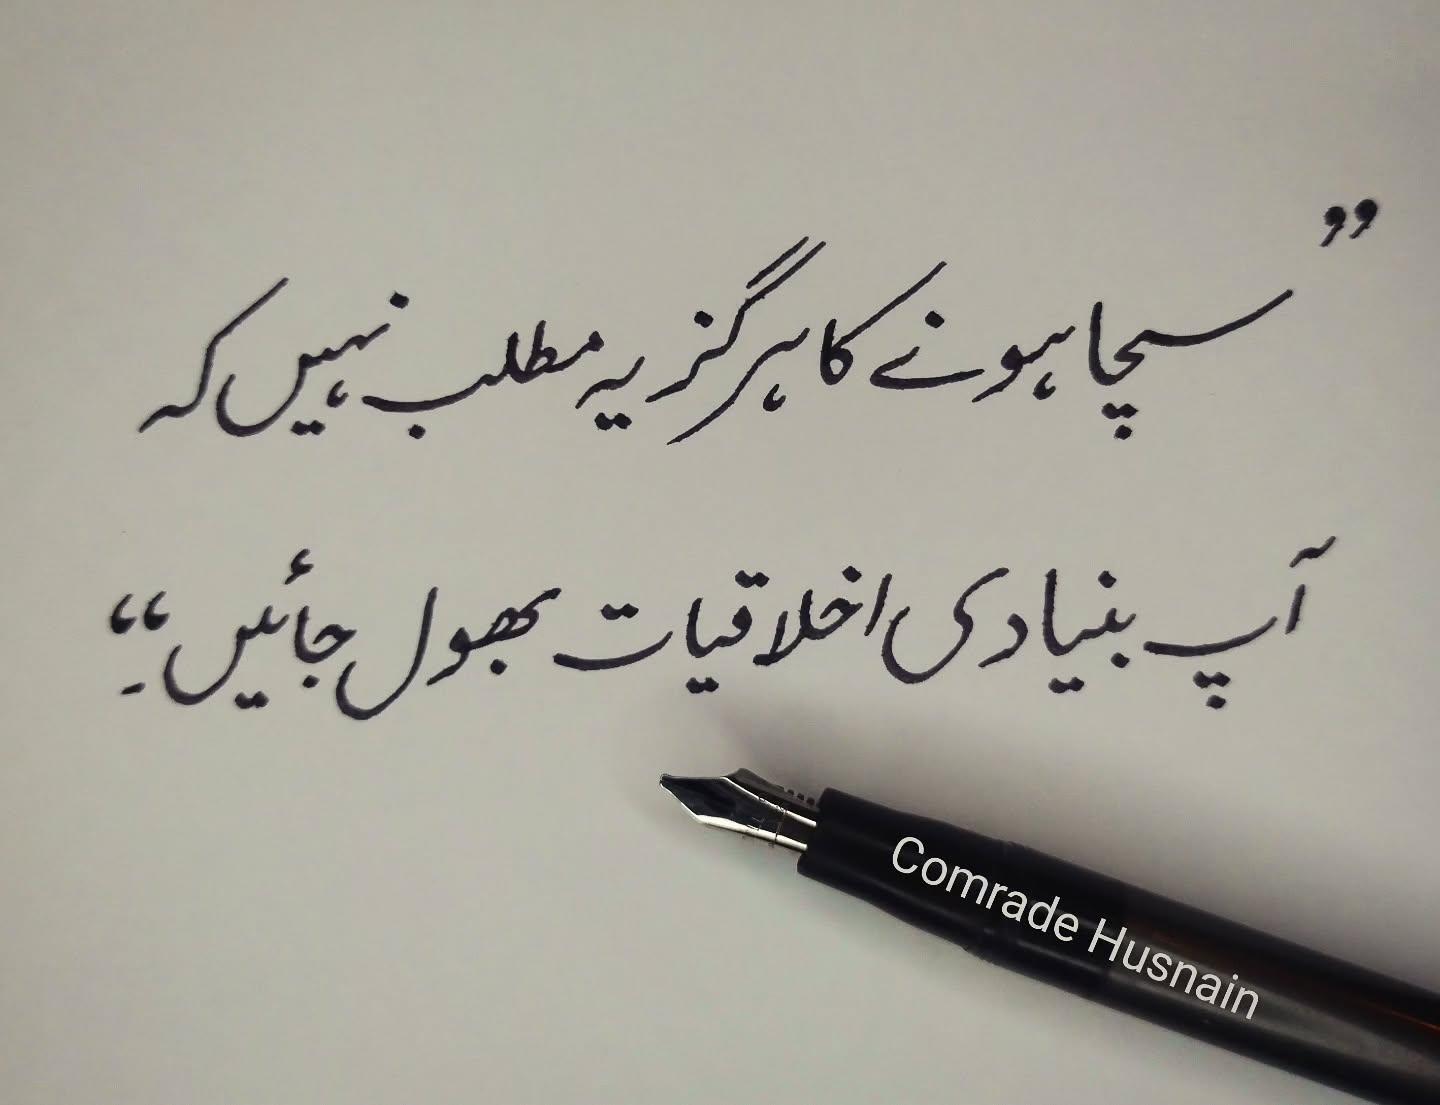 ”سچا ہونے کا ہرگز یہ مطلب نہیں کہ
آپ بنیادی اخلاقیات بھول جائیں۔“
Comrade Husnain